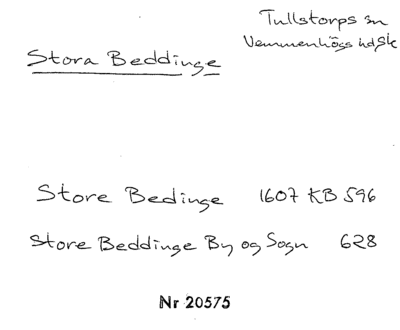 Tullstorps sn
Vemmenhögs hd Sk
Stora Beddinge
Store Bedinge 1607 KB 596
Store Beddinge By og Sogn 628
Nr 20575